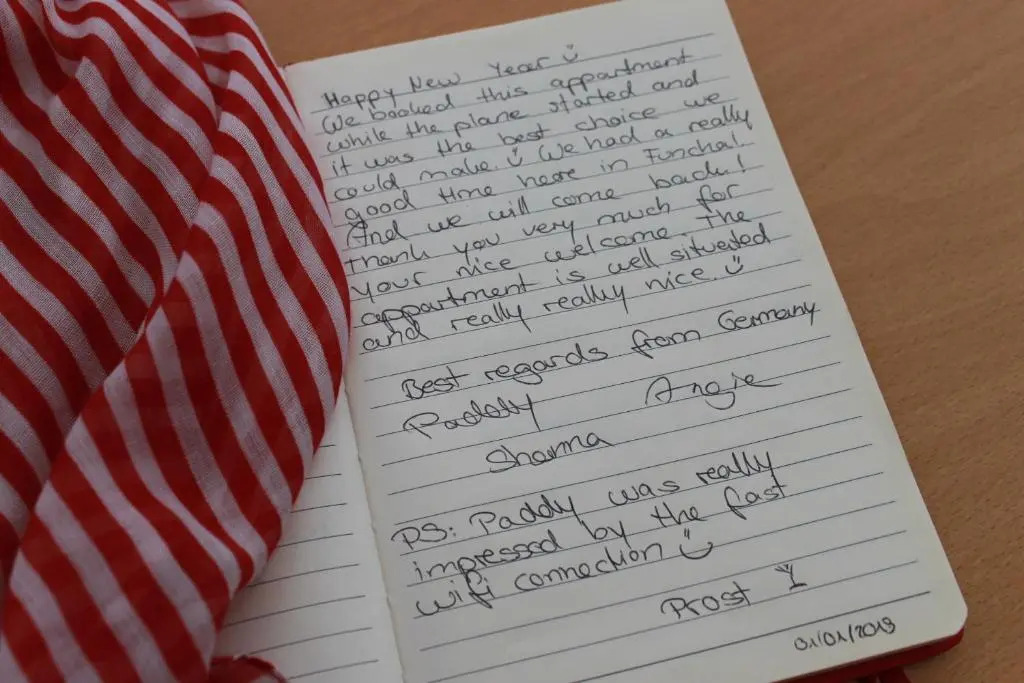 Happy New Year
We booked this appartment
while the plane started and
it was the best choice we
could make. We had a really
good time here in Funchal.
And we will come back!
Thank you very much for
your nice welcome. The
appartment is well situated
and really really nice.
Best regards from Germany
Paddy Angie
Sharina
PS: Paddy was really
impressed by the fast
wifi connection
Prost
01/01/2019